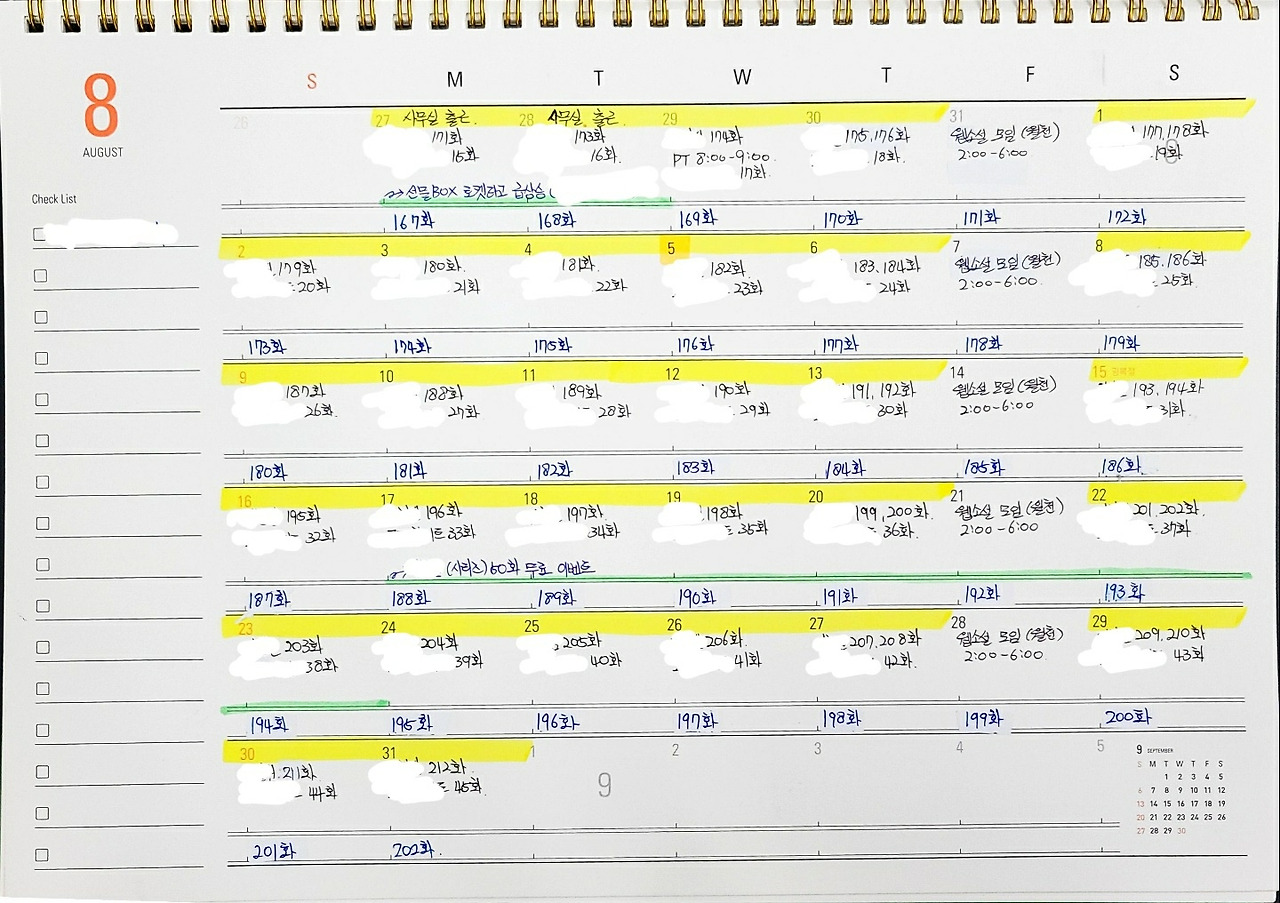 8
AUGUST
S M T W T F S
Check List
26 27 사무실 출근. 28 사무실 출근. 29 30 31 1
171화 173화 174화 175,176화 웹소설 모임 (월천) 177,178화
15화 16화. PT 8:00-9:00 18화. 2:00-6:00 19화
17화.
선물BOX 로켓라고 급상승
167화 168화 169화 170화 171화 172화
2 3 4 5 6 7 8
179화 180화. 181화. 182화 183,184화 웹소설 모임 (월천) 185,186화
20화 21화 22화 23화 24화 2:00-6:00 25화
173화 174화 175화 176화 177화 178화 179화
9 10 11 12 13 14 15 광복절
187화 188화 189화 190화 191,192화 웹소설 모임 (월천) 193,194화
26화. 27화 28화 29화 30화 2:00-6:00 31화
180화 181화 182화 183화 184화 185화 186화
16 17 18 19 20 21 22
195화 196화 197화 198화 199,200화 웹소설 모임 (월천) 201,202화
32화 트33화 34화 35화 36화 2:00-6:00 37화
(시리즈) 50화 무료 이벤트
187화 188화 189화 190화 191화 192화 193화
23 24 25 26 27 28 29
203화 204화 205화 206화 207,208화 웹소설 모임 (월천) 209,210화
38화 39화 40화 41화 42화. 2:00-6:00 43화
194화 195화 196화 197화 198화 199화 200화
30 31 1 2 3 4 5
211화 212화 9
44화 45화
201화 202화
9 SEPTEMBER
S M T W T F S
1 2 3 4 5
6 7 8 9 10 11 12
13 14 15 16 17 18 19
20 21 22 23 24 25 26
27 28 29 30